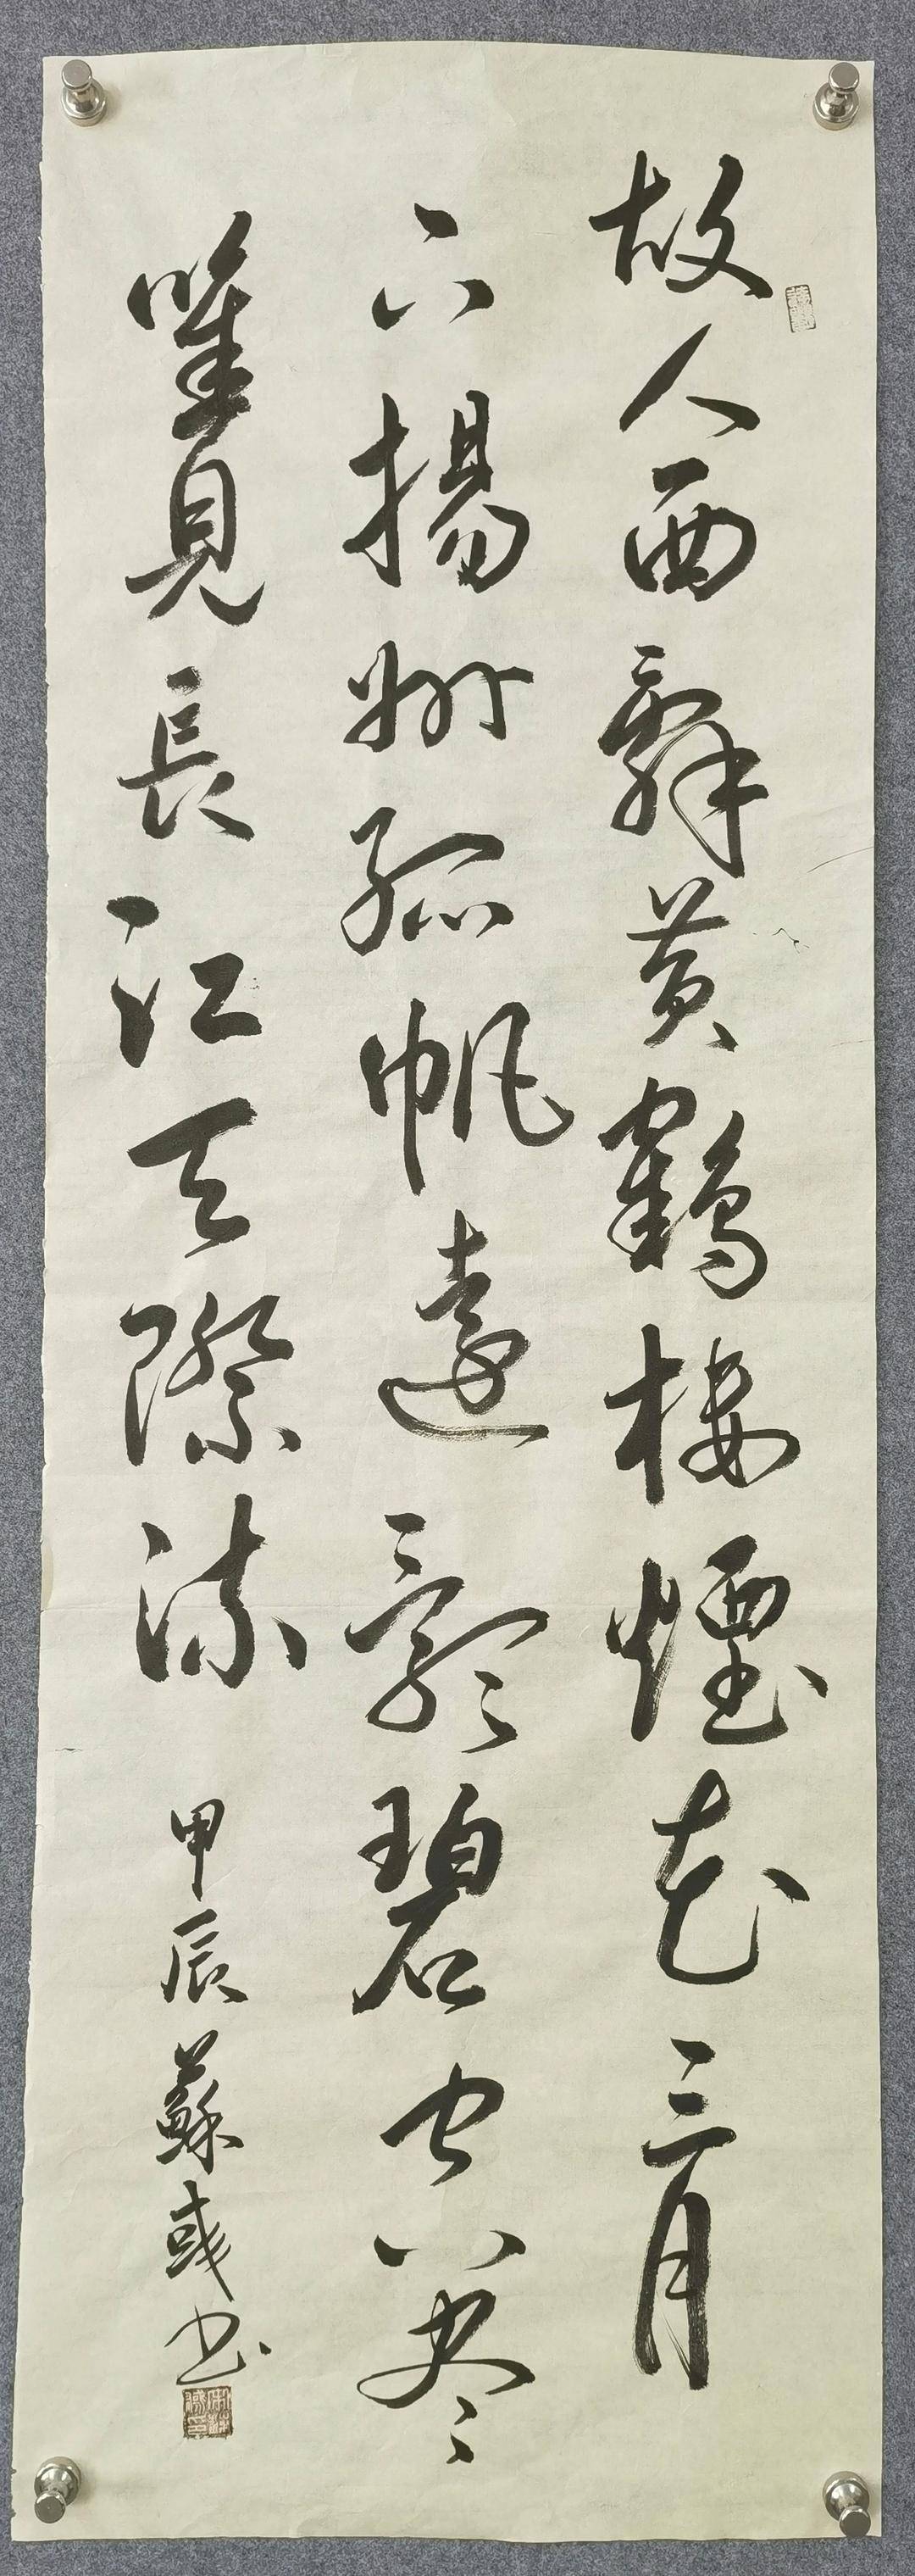 故人西辭黄鶴樓煙花三月
下揚州孤帆遠影碧空尽
唯見長江天際流
甲辰蘇彧书